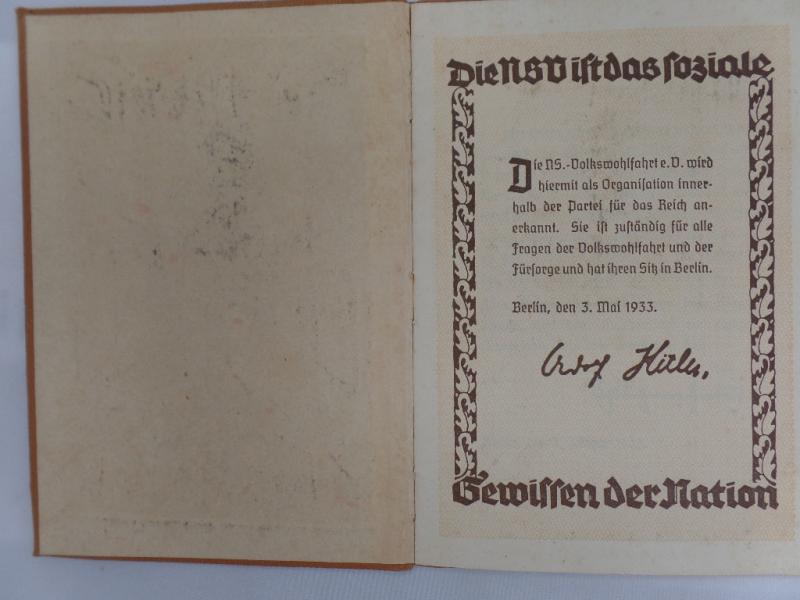 Die NSV ist das soziale
Die NS.-Volkswohlfahrt e.V. wird
hiermit als Organisation inner-
halb der Partei für das Reich an-
erkannt. Sie ist zuständig für alle
Fragen der Volkswohlfahrt und der
Fürsorge und hat ihren Sitz in Berlin.
Berlin, den 3. Mai 1933.
Adolf Hitler,
Gewissen der Nation